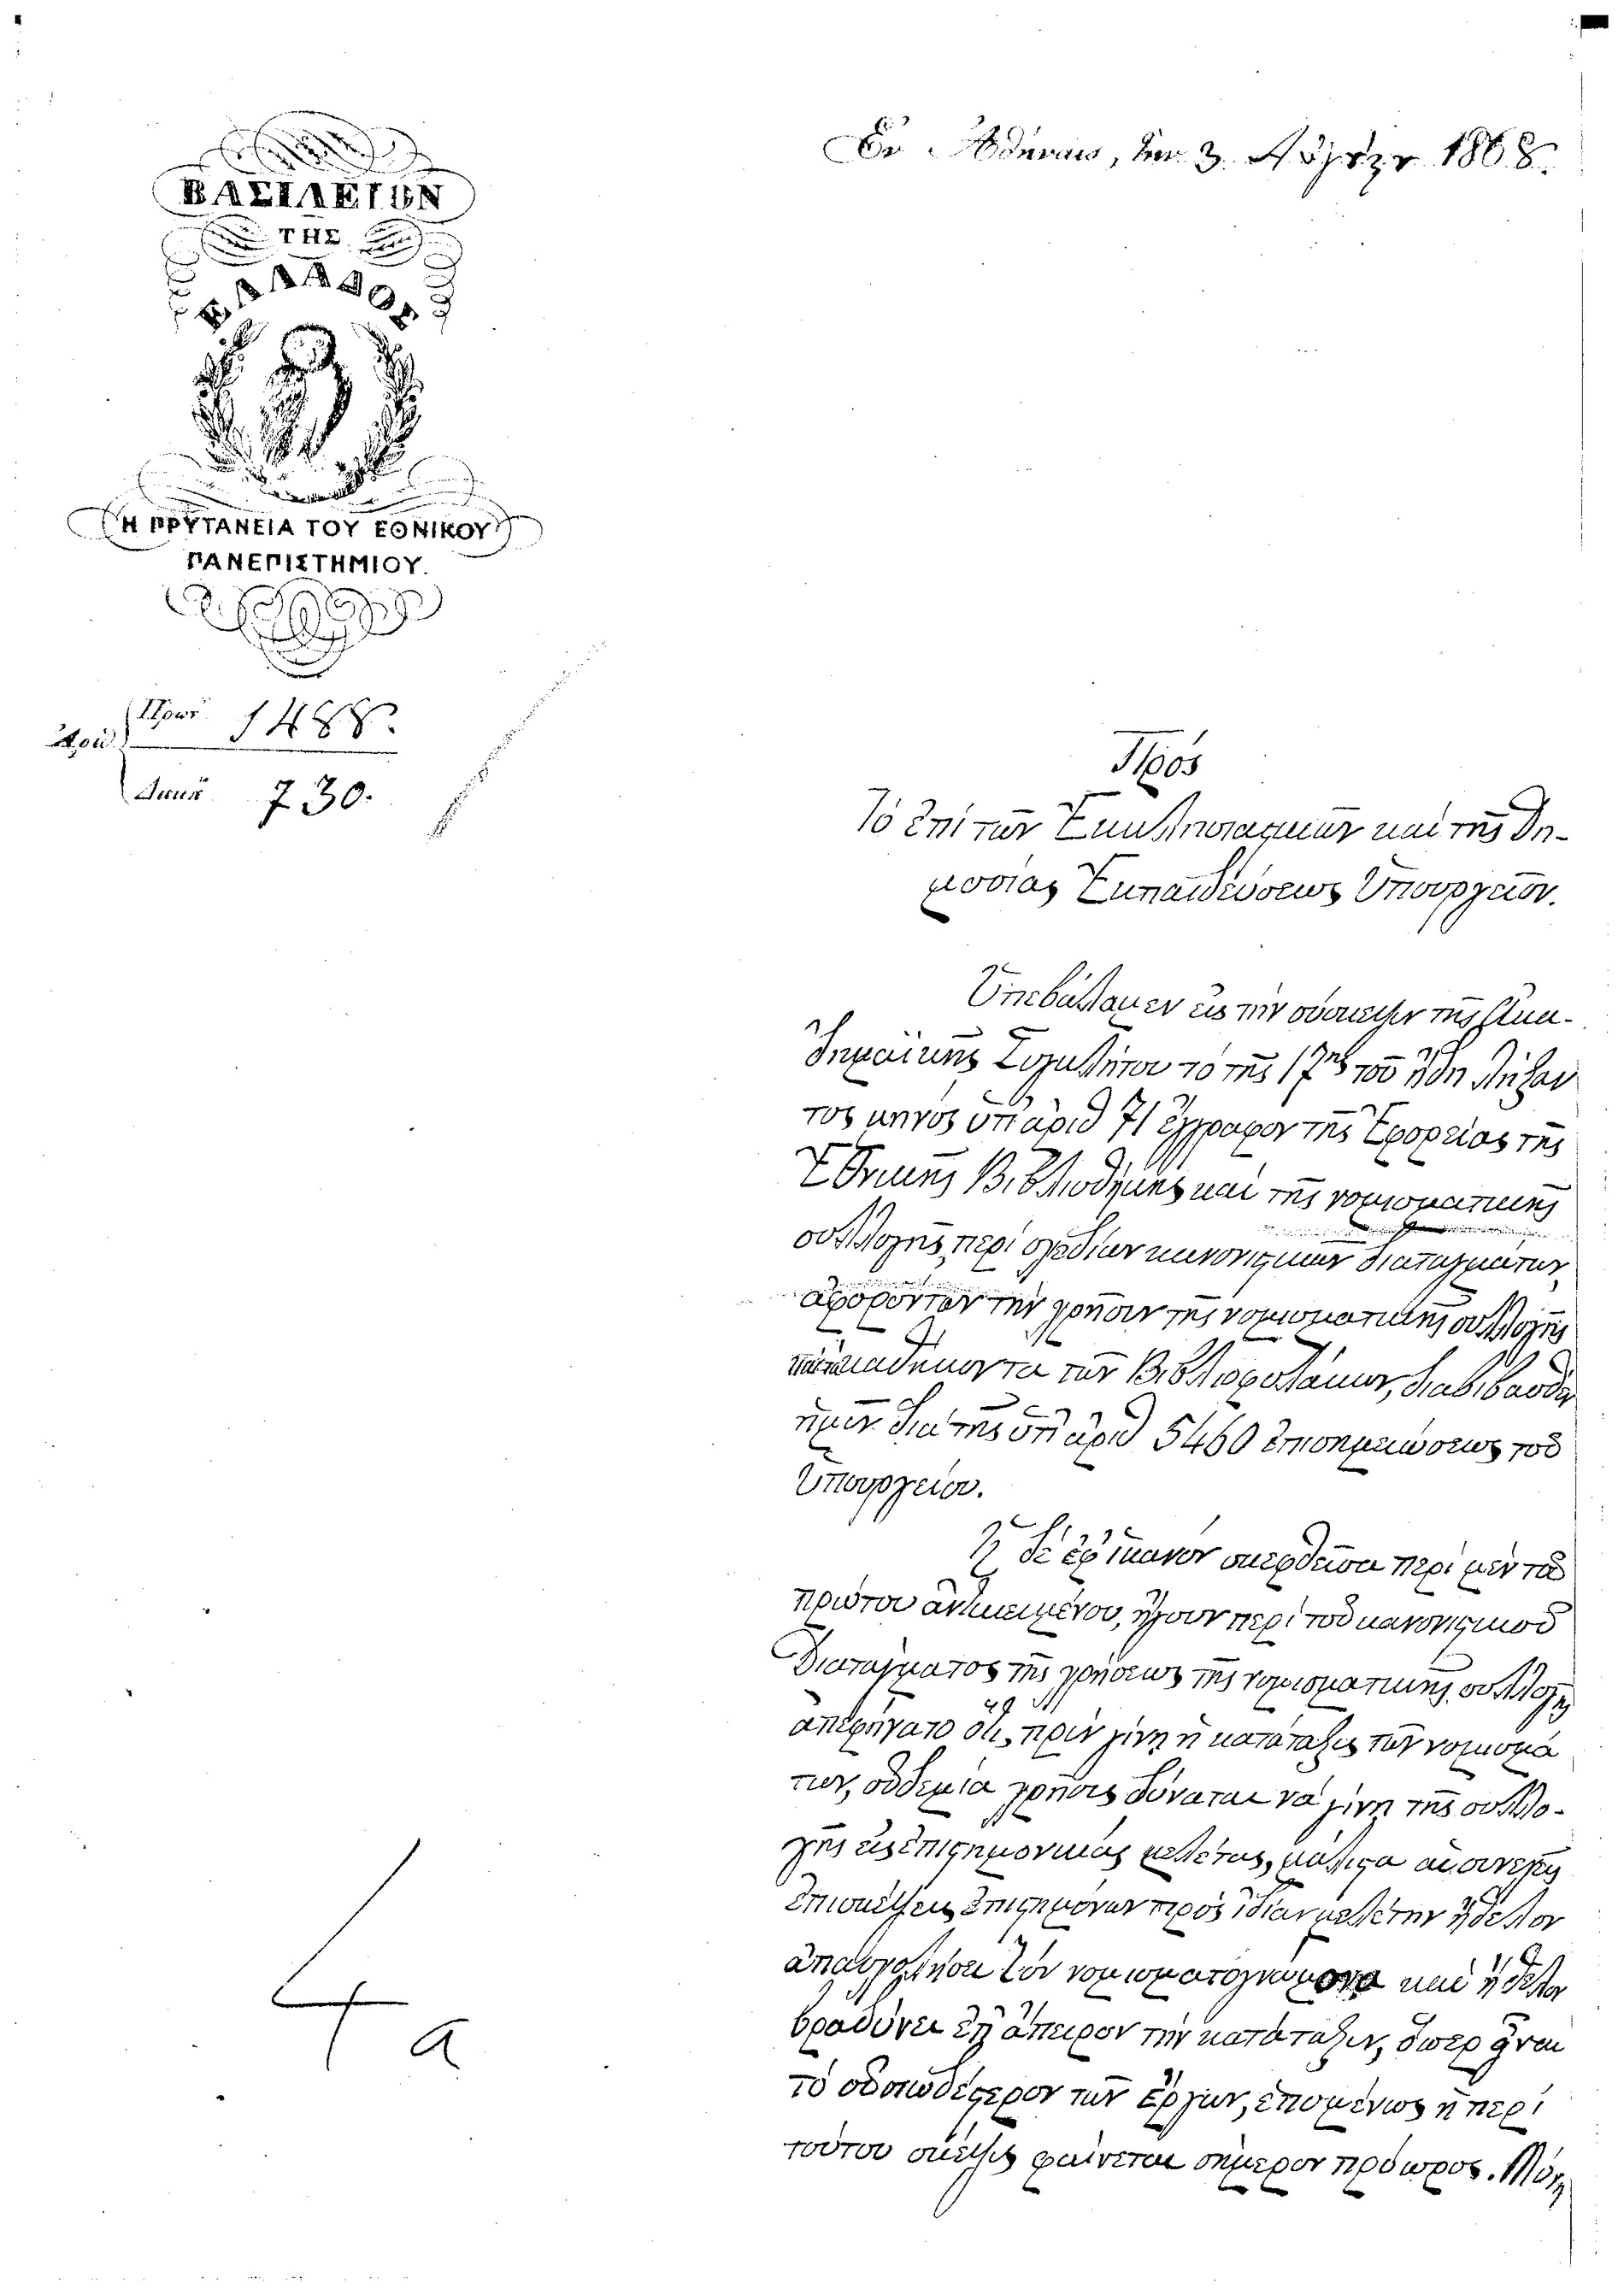 ΒΑΣΙΛΕΙΟΝ
ΤΗΣ
ΕΛΛΑΔΟΣ
Η ΠΡΥΤΑΝΕΙΑ ΤΟΥ ΕΘΝΙΚΟΥ
ΠΑΝΕΠΙΣΤΗΜΙΟΥ.
Ἀριθ. Πρωτ. 1488.
Διεκπ. 730.
Ἐν Ἀθήναις, τὴν 3. 1868.
Πρός
Τὸ ἐπὶ τῶν Ἐκκλησιαστικῶν καὶ τῆς Δη-
μοσίας Ἐκπαιδεύσεως Ὑπουργεῖον.
Ὑπεβάλαμεν εἰς τὴν σύσκεψιν τῆς Ἀκα-
δημαϊκῆς Συγκλήτου τὸ τῆς 17ης τοῦ ἤδη λήξαν
τος μηνὸς ὑπ' ἀριθ 71 ἔγγραφον τῆς Ἐφορείας τῆς
Ἐθνικῆς Βιβλιοθήκης καὶ τῆς νομισματικῆς
συλλογῆς, περὶ σχεδίων κανονιστικῶν διαταγμάτων,
ἀφορόντων τὴν χρῆσιν τῆς νομισματικῆς συλλογῆς
καὶ τὰ καθήκοντα τῶν Βιβλιοφυλάκων, διαβιβασθὲν
ἡμῖν διὰ τῆς ὑπ' ἀριθ 5460 ἐπισημειώσεως τοῦ
Ὑπουργείου.
Ἡ δὲ ἐφ' ἱκανὸν σκεφθεῖσα περὶ μὲν τοῦ
πρώτου ἀντικειμένου, ἤγουν περὶ τοῦ κανονιστικοῦ
Διατάγματος τῆς χρήσεως τῆς νομισματικῆς συλλογῆς
ἀπεφήνατο ὅτι, πρὶν γίνῃ ἡ κατάταξις τῶν νομισμά
των, οὐδεμία χρῆσις δύναται νὰ γίνῃ τῆς συλλο-
γῆς εἰς ἐπιστημονικὰς μελέτας, μάλιστα αἱ συνεχεῖς
ἐπισκέψεις ἐπιστημόνων πρὸς ἰδίαν μελέτην ἤθελον
ἀπασχολήσει τὸν νομισματογνώμονα καὶ ἤθελον
βραδύνει ἐπ' ἄπειρον τὴν κατάταξιν, ὅπερ εἶναι
τὸ οὐσιωδέστερον τῶν ἔργων, ἑπομένως ἡ περὶ
τούτου σκέψις φαίνεται σήμερον πρόωρος. Μόνη
4
a